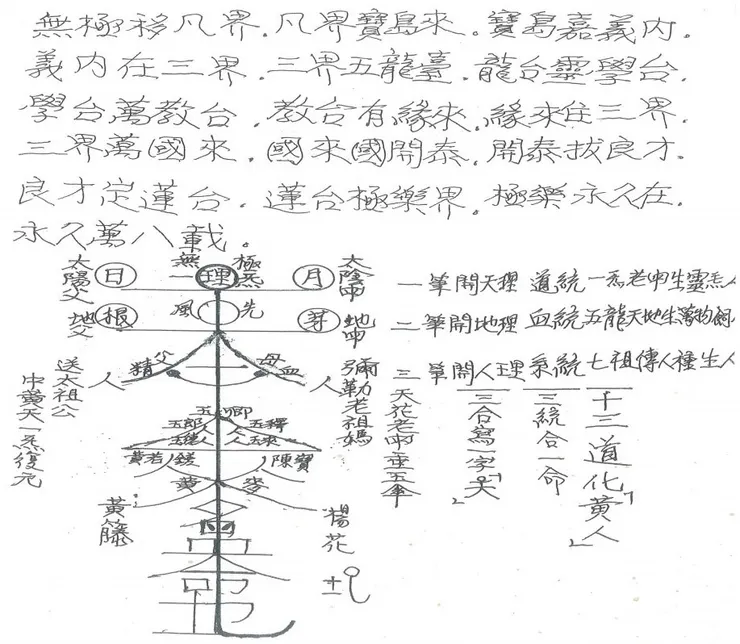 無極移凡界.凡界寶島來.寶島嘉義內.
義內在三界.三界五龍臺.龍台靈學台.
學台萬教台.教台有緣來.緣來住三界.
三界萬國來.國來國開泰.開泰拔良才.
良才定蓮台.蓮台極樂界.極樂永久在.
永久萬八載.
太陽父 日 無 理 極 月 太陰
地父 根 風 先 芽 地
一筆開天理 道統
二筆開地理 血統 五龍天地生萬物
三筆開人理 系統 七祖傳人種生人
人 精父 母血 人
送太祖公
中黃天一炁復元
彌勒老祖媽
三天花老
三合寫一字「天」
三統合一命
十三道化「黃人」
五
五郎 五釋
人 人 五來
黃 陳寶
黃 麥
黃籐 楊花